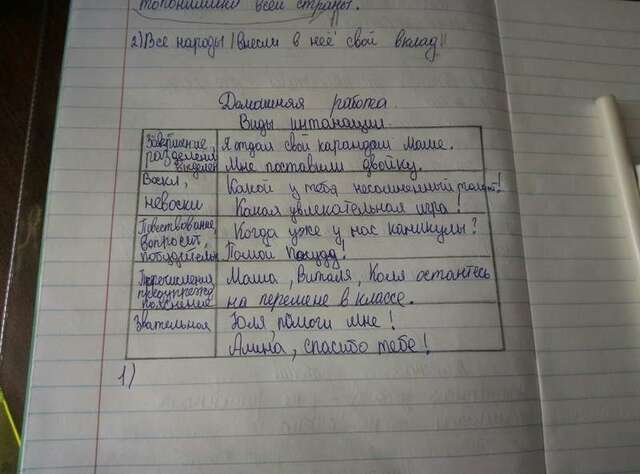 топонимики всей страны.
2) Все народы внесли в неё свой вклад
Домашняя работа.
Виды интонации.
Завершение, разделения выделен
Я отдал свой карандаш Маше.
Мне поставили двойку.
Воскл, невоскл
Какой у тебя несомненный талант!
Какая увлекательная игра!
Повествование, вопросит, побудительн
Когда уже у нас каникулы?
Помой посуду!
Перечисления предупрежд пояснение
Маша, Виталя, Коля останьтесь
на перемене в классе.
Звательная
Юля, помоги мне!
Амина, спасибо тебе!
1)